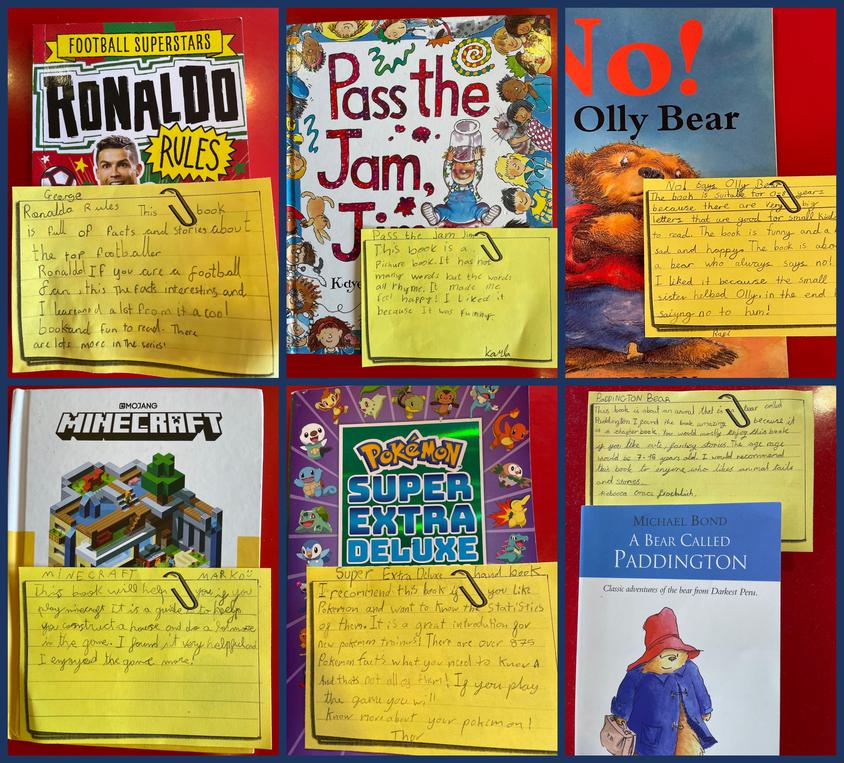 FOOTBALL SUPERSTARS
RONALDO
RULES
George
Ronaldo Rules This book
is full of facts and stories about
the top footballer
Ronaldo! If you are a football
fan, this the facts interesting and
I learned a lot from it a cool
book and fun to read. There
are lots more in the series!
Pass the
Jam,
J
Kaye
Pass the Jam Jim
This book is a
Picture book. It has not
many words but the words
all rhyme. It made me
feel happy! I liked it
because it was funny.
Kayla
No!
Olly Bear
No! Says Olly Bear
The book is suitable for years
because there are very big
letters that are good for small kids
to read. The book is funny and a
sad and happy. The book is abo
a bear who always says no!
I liked it because the small
sister helbed Olly in the end b
saiyng no to him!
@MOJANG
MINECRAFT
MINECRAFT MARKO
This book will help you if you
play minecraft It is a guide to help
you construct a house and do a lot more
in the game. I found it very helpful and
I enjoyed the game more!
Pokémon
SUPER
EXTRA
DELUXE
Super Extra Delux hand book
I recommend this book if you like
Pokemon and want to know the statistics
of them. It is a great introdution for
new pokemon trainers! There are over 875
Pokemon facts what you need to know
And thats not all of them! If you play
the game you will
know more about your pokemon!
Thor
PADDINGTON BEAR
This book is about an animal that is bear called
Paddington I found the book amazing because it
is a chapter book. You would mostly enjoy this book
if you like cute, fantasy stories. The age rage
would be 7-16 years old. I would recommend
this book to enyone who likes animal tails
and stories.
Rebecca Grace
MICHAEL BOND
A BEAR CALLED
PADDINGTON
Classic adventures of the bear from Darkest Peru.